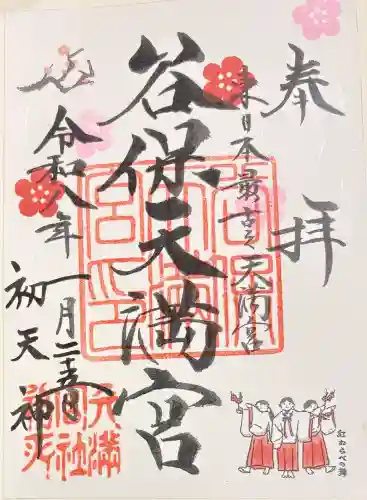 奉拝
東日本最古之天満宮
谷保天満宮
令和八年
一月二十五日
初天神
紅わらべの舞